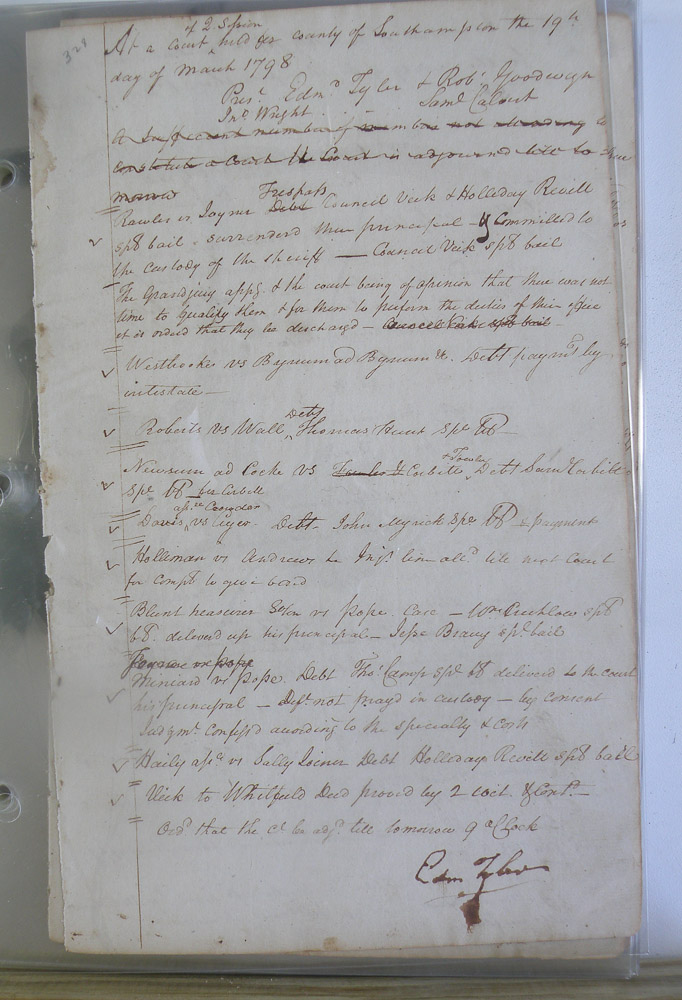 328
of 2 Session
At a Court held for county of Southampton the 19th
day of March 1798
Prest. Edmd Tyler & Robt Goodwyn
Jno. Wright Saml Calvert
A Sufficient number of members not attending to
constitute a Court the Court is adjourned till to
morrow
Trespass
Rawles vs Joyner Debt Council Vick & Holliday Revill
spb bail surrenderd their principal & Committed to
the Custody of the sheriff — Council Vick spb bail
The Grandjury appd. & the court being of opinion that there was not
time to Qualify them & for them to perform the duties of their office
it is ordred that they be discharged — Council Vick spb bail
Westbrooke vs Bynum ad Bynum &c. Debt paymt by
intestate —
Debt
Roberts vs Wall Thomas Hunt spl bb
& Fowler
Newsum ad Cocke vs Fowler & Corbitt Debt Saml Corbitt
spl bb for Corbitt
asse
Davis vs Debt John Myrick spl bb & payment
Holleman vs Andrews In Injn. till next Court
for Compt to give bond
Blunt Treasurer vs Pope Case — Wm spb
bb. deliverd up his principal — Jesse spl bail
vs Pope
Miniard vs Pope Debt Thos Camp spl bb deliverd to the court
his principal — Deft not prayd in custody — by consent
Judgmt Confessd according to the specialty & Costs
Haily asse vs Sally Joiner Debt Holladay Revill spb bail
Vick to Whitfield Deed provd by 2 wit. & Cont. —
Ord that the Ct be adjd till tomorrow 9 oClock
Edm Tyler